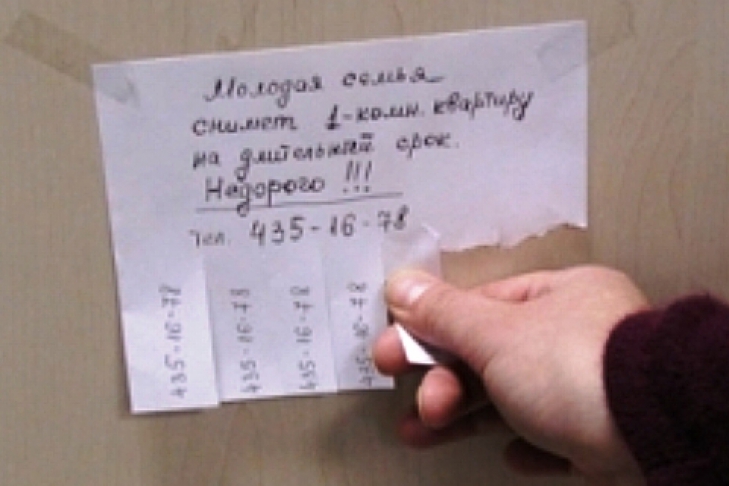 Молодая семья
снимет 1-комн. квартиру
на длительный срок.
Недорого !!!
Тел. 435-16-78
435-16-78
435-16-78
435-16-78
435-16-78